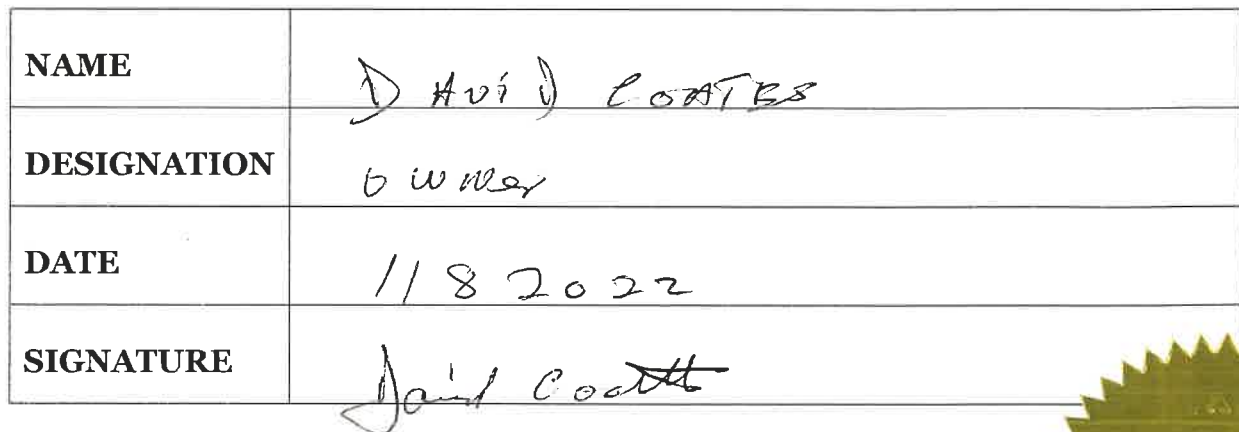 NAME DAVID COATES
DESIGNATION owner
DATE 11 8 2022
SIGNATURE David Coates